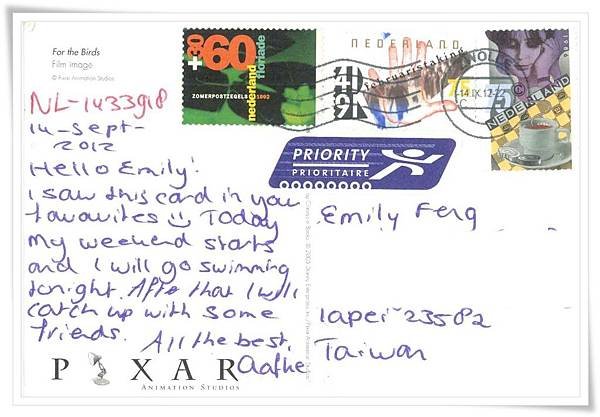 For the Birds
Film image
© Pixar Animation Studios
NL-1433918
14-Sept-
2012
Hello Emily!
I saw this card in you
favourites Today
my weekend starts
and I will go swimming
tonight. After that I will
catch up with some
friends.
All the best,
Aafke
PIXAR
ANIMATION STUDIOS
+30 60
nederland
floriade
ZOMERPOSTZEGELS 1992
NEDERLAND
februaristaking
41
91
75
NEDERLAND
14.IX.12
PRIORITY
PRIORITAIRE
Emily Feng
Taipei 23582
Taiwan